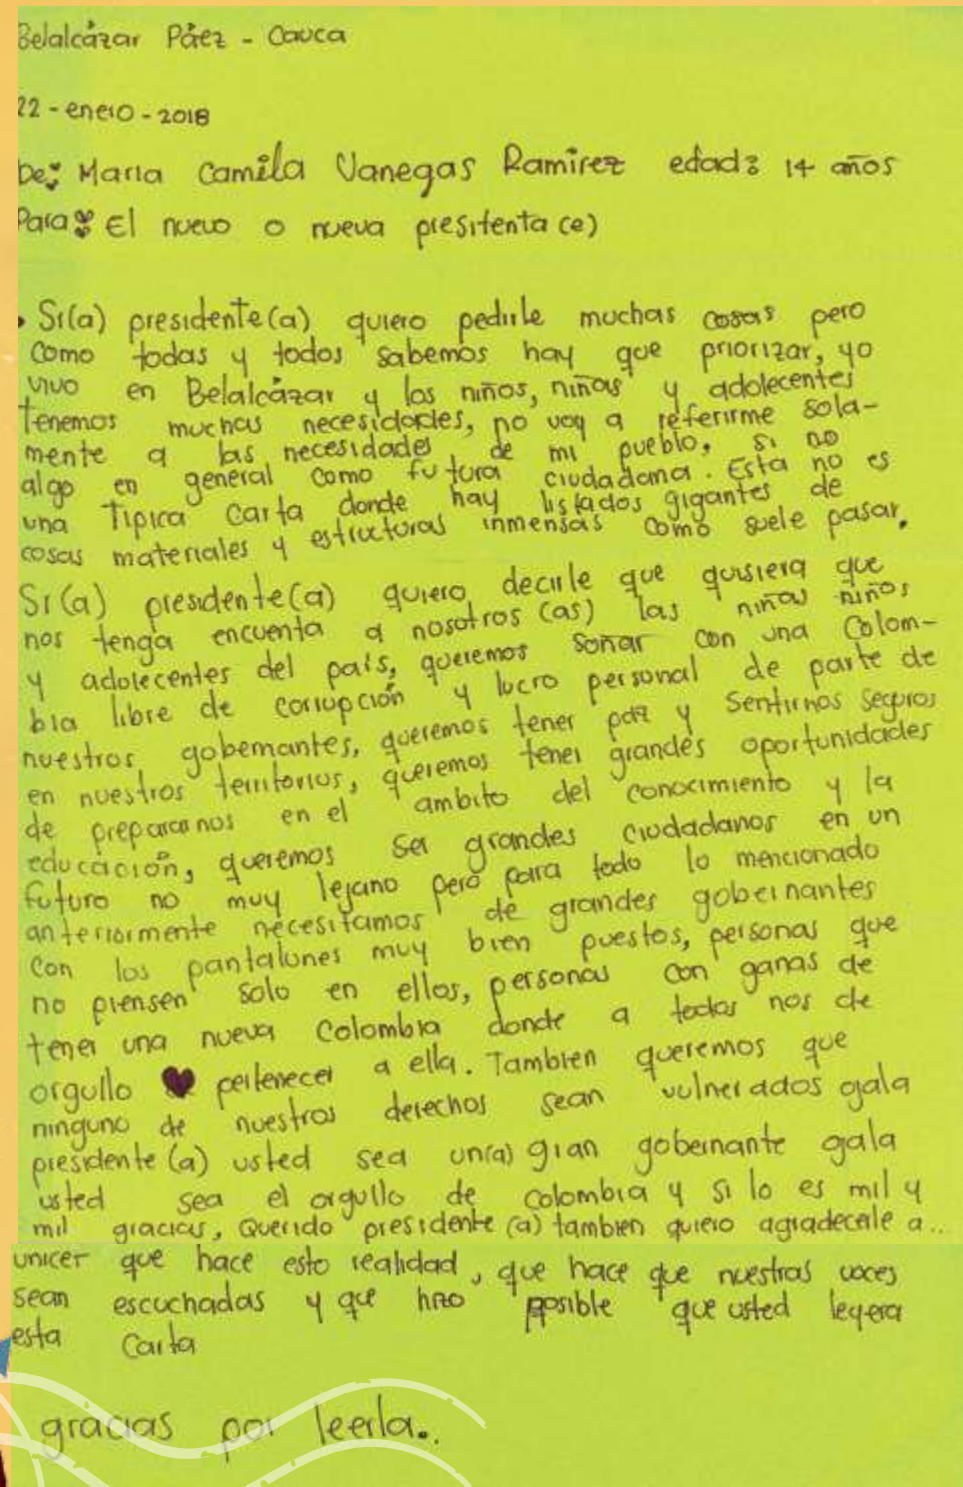 Belalcázar Páez - Cauca
22 - enero - 2018
De: Maria Camila Vanegas Ramirez edad: 14 años
Para: El nuevo o nueva presitenta (e)
• Sr(a) presidente(a) quiero pedirle muchas cosas pero
como todas y todos sabemos hay que priorizar, yo
vivo en Belalcázar y los niños, niñas y adolecentes
tenemos muchas necesidades, no voy a referirme sola-
mente a las necesidades de mi pueblo, si no
algo en general como futura ciudadana. Esta no es
una Tipica carta donde hay listados gigantes de
cosas materiales y estructuras inmensas como suele pasar.
Sr(a) presidente(a) quiero decirle que quisiera que
nos tenga encuenta a nosotros (as) las niñas niños
y adolecentes del país, queremos soñar con una Colom-
bia libre de corrupción y lucro personal de parte de
nuestros gobernantes, queremos tener paz y sentirnos seguros
en nuestros territorios, queremos tener grandes oportunidades
de prepararnos en el ambito del conocimiento y la
educación, queremos ser grandes ciudadanos en un
futuro no muy lejano pero para todo lo mencionado
anteriormente necesitamos de grandes gobernantes
con los pantalones muy bien puestos, personas que
no piensen solo en ellos, personas con ganas de
tener una nueva Colombia donde a todos nos de
orgullo ♥ pertenecer a ella. Tambien queremos que
ninguno de nuestros derechos sean vulnerados ojala
presidente (a) usted sea un(a) gran gobernante ojala
usted sea el orgullo de Colombia y si lo es mil y
mil gracias, Querido presidente (a) tambien quiero agradecerle a...
unicef que hace esto realidad, que hace que nuestras voces
sean escuchadas y que hizo posible que usted leyera
esta Carta
gracias por leerla..